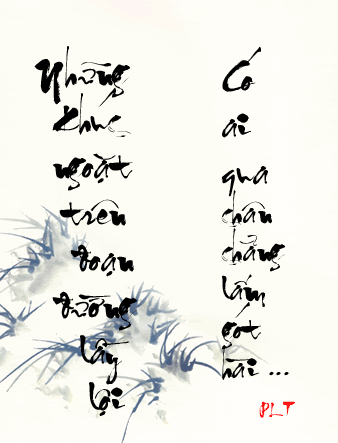 Những
khúc
ngoặt
trên
đoạn
đường
lấy
lại
Có
ai
qua
chân
chẳng
lấm
gót
hài ...
PLT